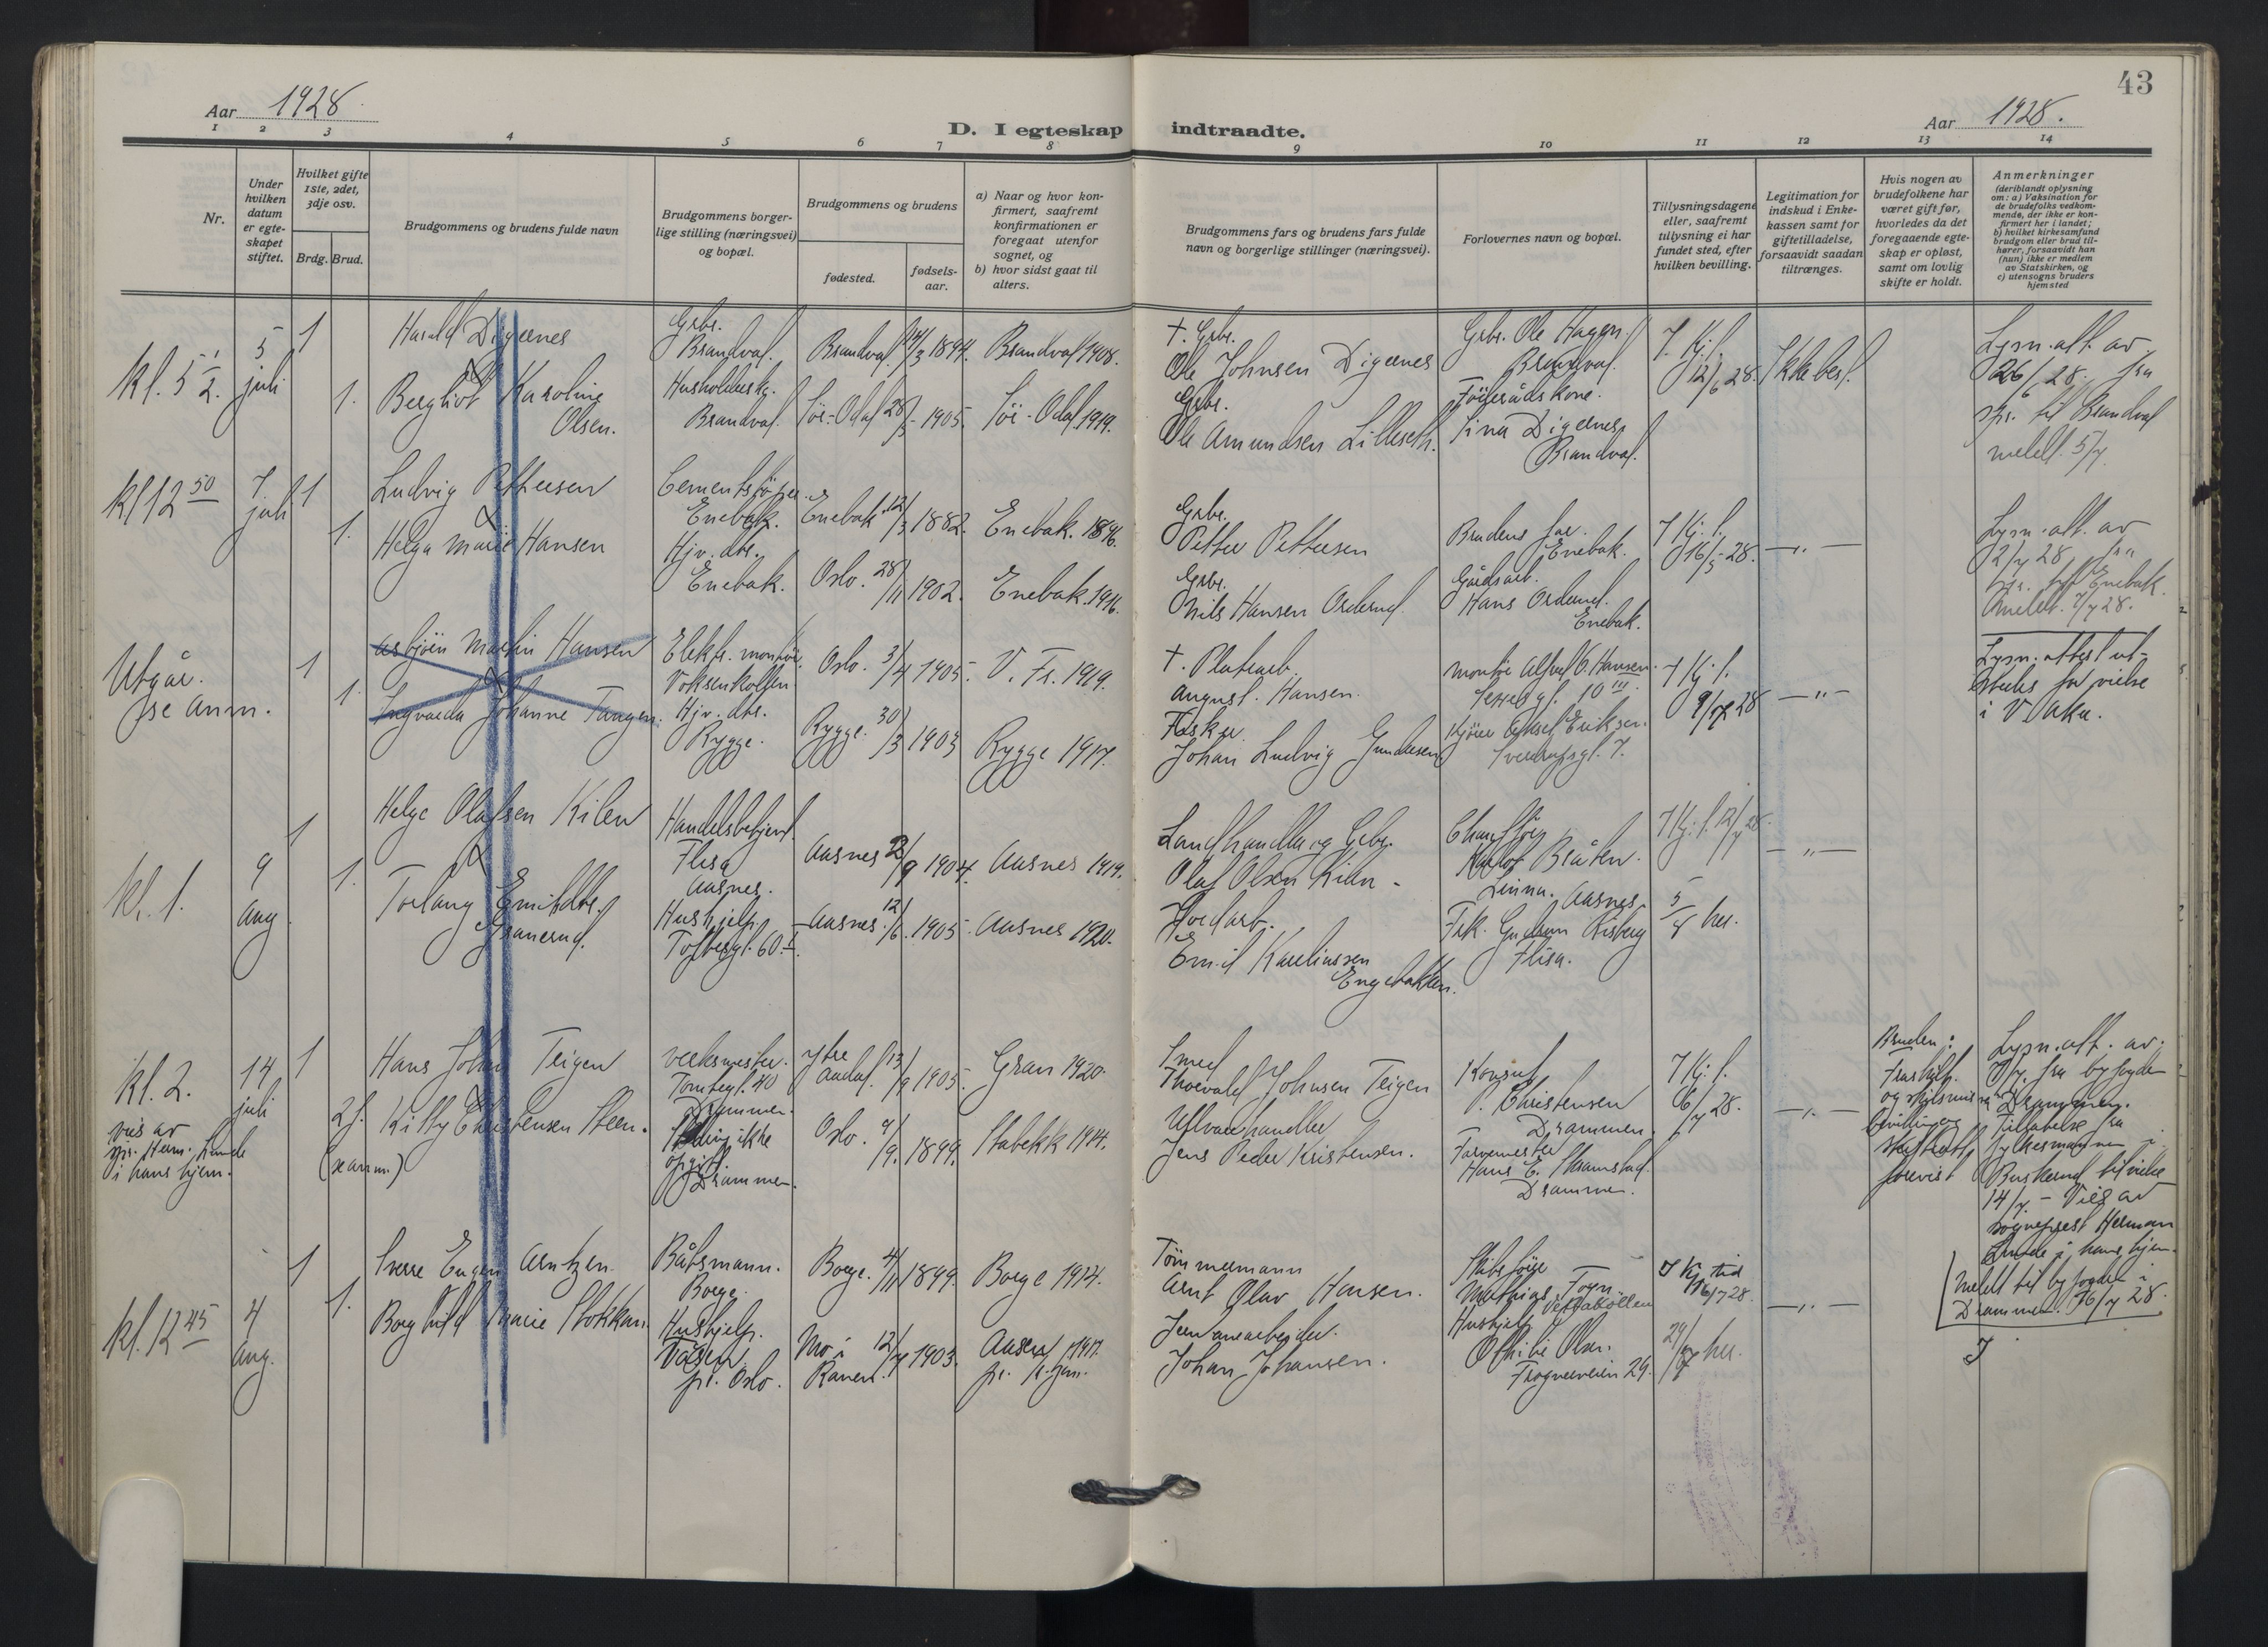 43
Aar 1928.
D. I egteskap indtraadte.
Aar 1928.
1 2 3 4 5 6 7 8 9 10 11 12 13 14
Nr.
Under hvilken datum er egte-skapet stiftet.
Hvilket gifte 1ste, 2det, 3dje osv.
Brdg. Brud.
Brudgommens og brudens fulde navn
Brudgommens borger-
lige stilling (næringsvei)
og bopæl.
Brudgommens og brudens
fødested.
fødsels-
aar.
a) Naar og hvor kon-
firmert, saafremt
konfirmationen er
foregaat utenfor
sognet, og
b) hvor sidst gaat til
alters.
Brudgommens fars og brudens fars fulde
navn og borgerlige stillinger (næringsvei).
Forlovernes navn og bopæl.
Tillysningsdagene
eller, saafremt
tillysning ei har
fundet sted, efter
hvilken bevilling.
Legitimation for
indskud i Enke-
kassen samt for
giftetilladelse,
forsaavidt saadan
tiltrænges.
Hvis nogen av
brudefolkene har
været gift før,
hvorledes da det
foregaaende egte-
skap er opløst,
samt om lovlig
skifte er holdt.
Anmerkninger
(deriblandt oplysning
om: a) Vaksination for
de brudefolks vedkom-
mende, der ikke er kon-
firmert her i landet;
b) hvilket kirkesamfund
brudgom eller brud til-
hører, forsaavidt han
(hun) ikke er medlem
av Statskirken, og
c) utensogns bruders
hjemsted
kl. 5 1/2.
5 juli
1
Harald Digernes
Grbr.
Brandval.
Brandval 14/3 1894.
Brandval 1908.
+ Grbr.
Ole Johnsen Digernes
Grbr. Ole Hagen
Brandval.
12/6 28.
Ikke bef.
Lysn.att. av
26/6 28. fra
spr. til Brandval
meldt 5/7
1.
Bergliot Karoline
Olsen.
Brandval.
Sör-Odal 28/5 1905.
Sör-Odal 1919.
Grbr.
Ole Amundsen Lilleseth.
Föderådskone.
Tina Digernes
Brandval.
kl 12 50
7. juli
1
Ludvig Pettersen
Cementstöper.
Enebak.
Enebak 12/3 1882.
Enebak. 1896.
Grbr.
Petter Pettersen
Brudens far.
Enebak.
16/5 28.
Lysn.att. av
2/7 28 fra
spr. til Enebak.
Meldt. 7/7 28.
1.
Helga Marie Hansen
Hjv. dtr.
Enebak.
Oslo. 28/11 1902.
Enebak. 1916.
Grbr.
Nils Hansen Orderud.
Gårdsarb.
Hans Orderud.
Enebak.
Utgår.
se anm.
1
Asbjörn Martin Hansen
Elektr. montör.
Voksenkollen
Oslo. 3/4 1905.
V. Fr. 1919.
+. Platearb.
August. Hansen.
9/7 28
Lysn.attest ut-
stedes for vielse
i V. Aker.
1.
Ingvarda Johanne Tangen.
Hjv. dtr.
Rygge.
Rygge. 30/3 1903
Rygge 1917.
Fisker.
Johan Ludvig Gundersen
Sverdrupsgt. 7.
kl. 1.
9 aug.
1
Helge Olafsen Kilen
Handelsbetjent
Flisa
Aasnes.
Aasnes 2/9 1904.
Aasnes 1919.
Landhandler og Grbr.
Olaf Olsen Kilen
Chaufför
Bråten.
Linna. Aasnes.
1.
Torlaug Emilsdtr.
Granerud.
Hushjelp.
Toftesgt. 60.
Aasnes. 12/6. 1905.
Aasnes 1920.
Emil Karelinssen
Engebakken.
Frk. Gudrun Risberg
Flisa.
5/8 her.
kl. 2.
14 juli
viet av
spr. Herm. Lunde
i hans hjem.
1
Hans Johan Teigen
verksmester.
Tomtegt. 40
Drammen.
Ytre
Aadal. 13/9 1905.
Gran 1920.
Smed
Thorvald Johnsen Teigen
Konsul
P. Christensen
Drammen.
6/7 28.
Bruden:
Fraskilt.
forevist
Lysn.att. av
fra byfogden
Drammen.
Tilladelse fra
fylkesmannen i
Buskerud til vielse
14/7 - Viet av
sogneprest Herman
Lunde i hans hjem.
Meldt til byfogden i
Drammen. 16/7 28.
2g.
(se anm.)
Kitty Christensen Steen.
Stilling ikke
opgitt
Drammen.
Oslo. 4/9. 1899.
Stabekk 1914.
Uldvarehandler
Jens Peder Kristensen.
Farvemester
Hans E. Skramstad
Drammen.
kl. 12 45
4 aug.
1
Sverre Eugen Arntzen.
Båtsmann.
Borge.
Borge. 4/11 1899.
Borge 1914.
Tömmermann
Arnt Olav Hansen.
Skibsförer
Mathias Fogn
16/7 28.
1.
Borghild Marie Stokkan.
Hushjelp.
pr. Oslo.
Mo i
Ranen. 12/7 1903.
Aasen 1917.
Jernbanearbeider.
Johan Johansen.
Hushjelp
Olsen.
Frognerveien 29.
29/7 her.